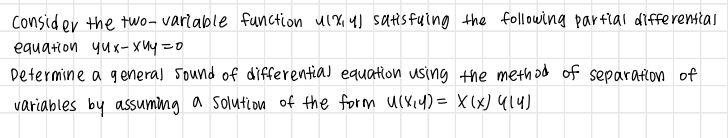 Consider the two-variable function u(x,y) satisfying the following partial differential
equation yux-xuy=0
Determine a general sound of differential equation using the method of separation of
variables by assuming a solution of the form u(x,y) = X(x) Y(y)